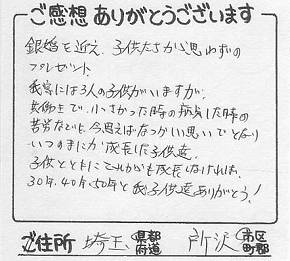 ご感想ありがとうございます
銀婚を迎え、子供たちから思わずの
プレゼント。
我家には3人の子供がいますが、
共働きで、小さかった時の病気した時の
苦労なども、今思えばなつかしい思いでとなり
いつのまにか成長した子供達。
子供とともにこれからも成長しなければ。
30年、40年、50年と 子供達ありがとう!
ご住所 埼玉 都道府県 所沢 市区町郡